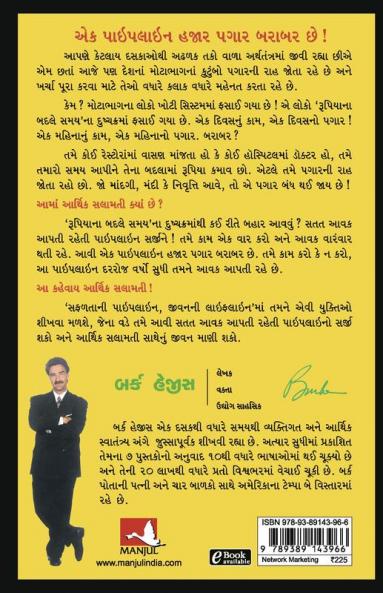 એક પાઇપલાઇન હજાર પગાર બરાબર છે !
આપણે કેટલાય દસકાઓથી અઢળક તકો વાળા અર્થતંત્રમાં જીવી રહ્યા છીએ
એમ છતાં આજે પણ દેશનાં મોટાભાગનાં કુટુંબો પગારની રાહ જોતા રહે છે અને
ખર્ચા પૂરા કરવા માટે તેઓ વધારે કલાક વધારે મહેનત કરતા રહે છે.
કેમ ? મોટાભાગના લોકો ખોટી સિસ્ટમમાં ફસાઈ ગયા છે ! એ લોકો ‘રૂપિયાના
બદલે સમય’ના દુષ્ચક્રમાં ફસાઈ ગયા છે. એક દિવસનું કામ, એક દિવસનો પગાર !
એક મહિનાનું કામ, એક મહિનાનો પગાર. બરાબર ?
તમે કોઈ રેસ્ટોરાંમાં વાસણ માંજતા હો કે કોઈ હૉસ્પિટલમાં ડૉક્ટર હો, તમે
તમારો સમય આપીને તેના બદલામાં રૂપિયા કમાવ છો. એટલે તમે પગારની રાહ
જોતા રહો છો. જો માંદગી, મંદી કે નિવૃત્તિ આવે, તો એ પગાર બંધ થઈ જાય છે !
આમાં આર્થિક સલામતી ક્યાં છે ?
‘રૂપિયાના બદલે સમય’ના દુષ્ચક્રમાંથી કઈ રીતે બહાર આવવું ? સતત આવક
આપતી રહેતી પાઇપલાઇન સર્જીને ! તમે કામ એક વાર કરો અને આવક વારંવાર
થતી રહે. આવી એક પાઇપલાઇન હજાર પગાર બરાબર છે. તમે કામ કરો કે ન કરો,
આ પાઇપલાઇન દરરોજ વર્ષો સુધી તમને આવક આપતી રહે છે.
આ કહેવાય આર્થિક સલામતી !
‘સફળતાની પાઇપલાઇન, જીવનની લાઇફલાઇન’માં તમને એવી યુક્તિઓ
શીખવા મળશે, જેના વડે તમે આવી સતત આવક આપતી રહેતી પાઇપલાઇનો સર્જી
શકો અને આર્થિક સલામતી સાથેનું જીવન માણી શકો.
બર્ક હેજીસ
લેખક
વક્તા
ઉદ્યોગ સાહસિક
Burke
બર્ક હેજીસ એક દસકથી વધારે સમયથી વ્યક્તિગત અને આર્થિક
સ્વાતંત્ર્ય અંગે જુસ્સાપૂર્વક શીખવી રહ્યા છે. અત્યાર સુધીમાં પ્રકાશિત
તેમના ૭ પુસ્તકોનો અનુવાદ ૧૦થી વધારે ભાષાઓમાં થઈ ચૂક્યો છે
અને તેની ૨૦ લાખથી વધારે પ્રતો વિશ્વભરમાં વેચાઈ ચૂકી છે. બર્ક
પોતાની પત્ની અને ચાર બાળકો સાથે અમેરિકાના ટેમ્પા બે વિસ્તારમાં
રહે છે.
MANJUL
www.manjulindia.com
eBook
available
ISBN 978-93-89143-96-6
9 789389 143966
Network Marketing ₹225